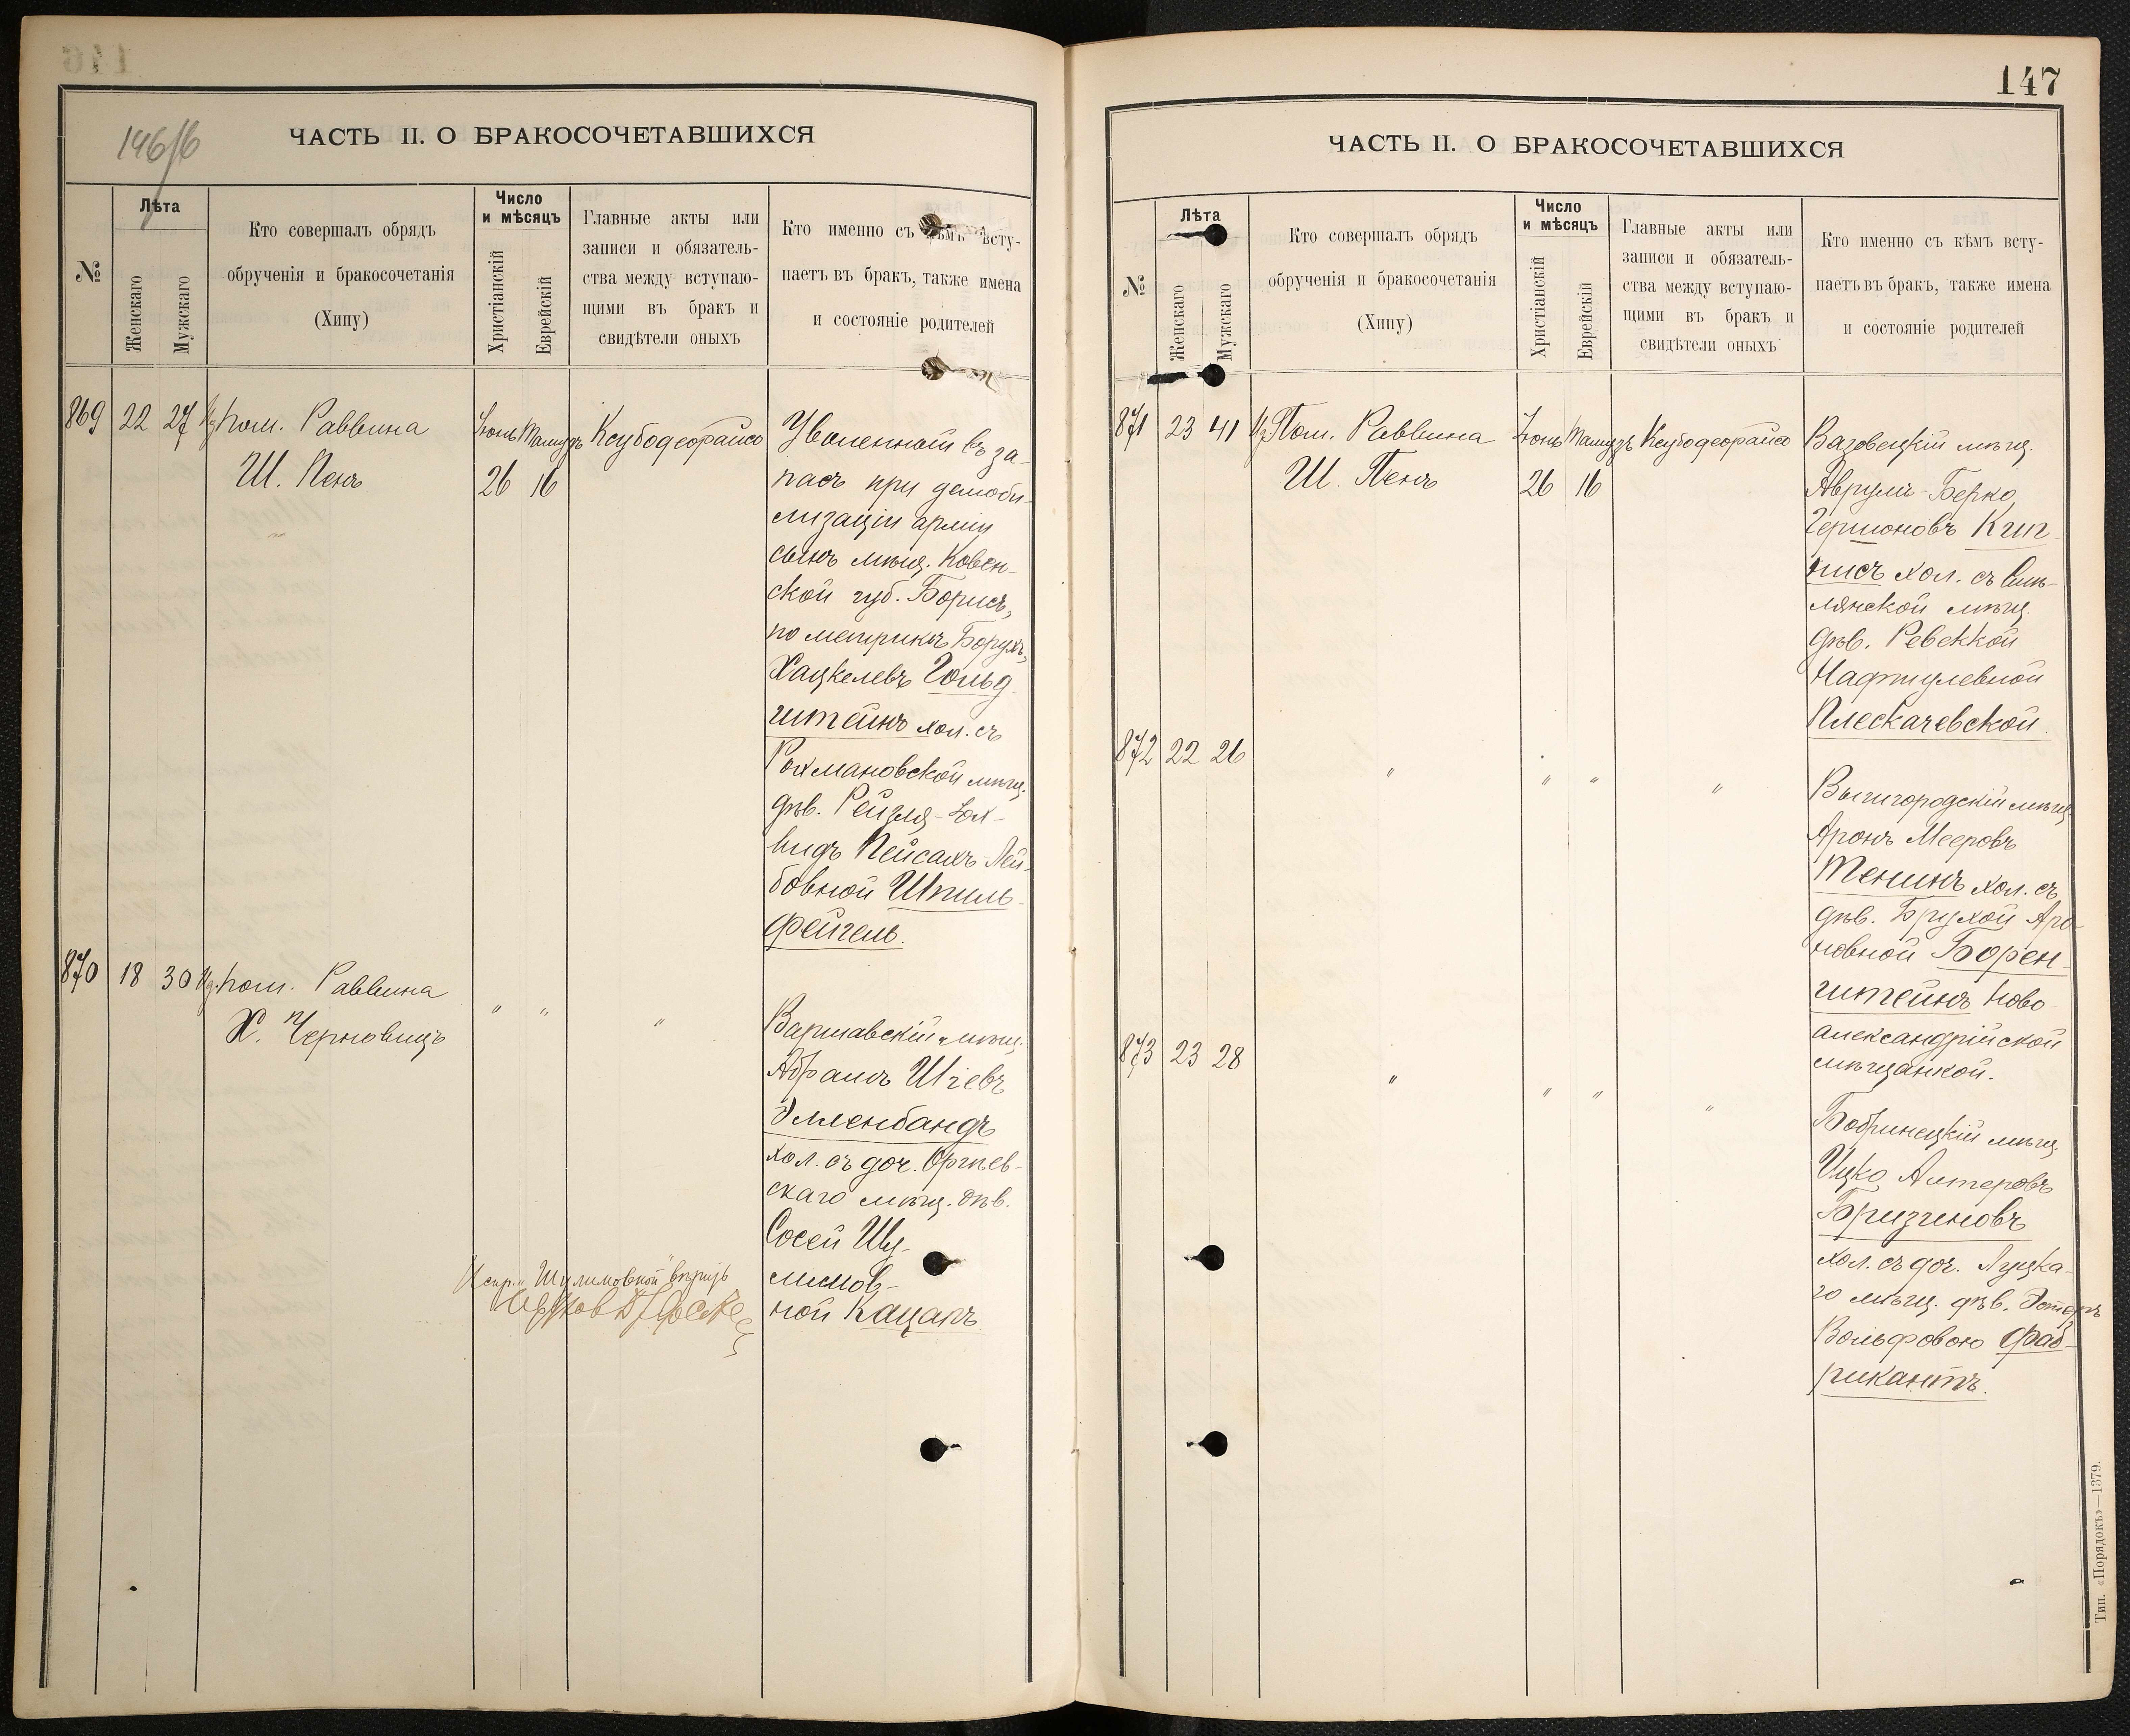 146
146/б
ЧАСТЬ II. О БРАКОСОЧЕТАВШИХСЯ
№
Лѣта
Женскаго
Мужскаго
Кто совершалъ обрядъ
обрученія и бракосочетанія
(Хипу)
Число
и мѣсяцъ
Христіанскій
Еврейскій
Главные акты или
записи и обязатель-
ства между вступаю-
щими въ бракъ и
свидѣтели оныхъ
Кто именно съ кѣмъ всту-
паетъ въ бракъ, также имена
и состояніе родителей
869 22 27 пом. Раввина
Ш. Пенъ
Іюнь Тамузъ
26 16
Ксубодеорайсо
Уволенный въ за-
пасъ при демоби-
лизаціи арміи
сынъ мѣщ. Ковен-
ской губ. Борисъ,
по метрикѣ Борухъ,
Хацкелевъ Гольд-
штейнъ хол. съ
Рохмановской мѣщ.
дѣв. Рейзля-Іох-
видъ Пейсахъ-Лей-
бовной Шпиль-
фейгель.
870 18 30 пом. Раввина
Х. Черновицъ
" " "
Варшавскій мѣщ.
Абрамъ Шіевъ
Элленбандъ
хол. съ доч. Оргѣев-
скаго мѣщ. дѣв.
Сосей Шу-
лимов-
ной Кацапъ.
Испр. "Шулимовной" вѣрить
147
ЧАСТЬ II. О БРАКОСОЧЕТАВШИХСЯ
№
Лѣта
Женскаго
Мужскаго
Кто совершалъ обрядъ
обрученія и бракосочетанія
(Хипу)
Число
и мѣсяцъ
Христіанскій
Еврейскій
Главные акты или
записи и обязатель-
ства между вступаю-
щими въ бракъ и
свидѣтели оныхъ
Кто именно съ кѣмъ всту-
паетъ въ бракъ, также имена
и состояніе родителей
871 23 41 Пом. Раввина
Ш. Пенъ
Іюнь Тамузъ
26 16
Ксубодеорайсо
мѣщ.
Аврумъ-Берко
Гершоновъ Книг-
нисъ хол. съ Смѣ-
лянской мѣщ.
дѣв. Ревеккой
Нафтулевной
Плескачевской.
872 22 26
" " " "
Вышгородскій мѣщ.
Аронъ Мееровъ
Тененъ хол. съ
дѣв. Брухой Аро-
новной Борен-
штейнъ Ново-
александрійской
мѣщанкой.
873 23 28
" " " "
Бобринецкій мѣщ.
Ицко Алтеровъ
Бризгиновъ
хол. съ доч. Луцка-
го мѣщ. дѣв. Эстеръ
Вольфовою Фаб-
рикантъ.
Тип. «Порядокъ»—1379.